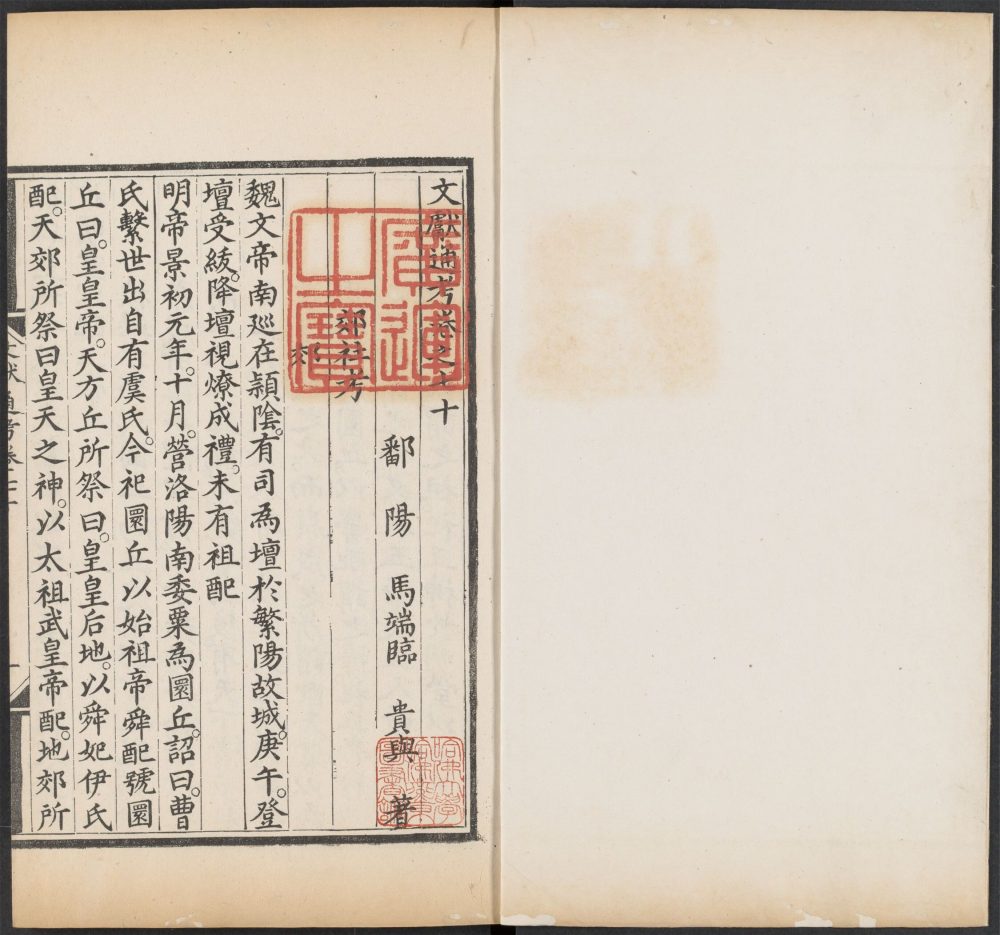 文獻通考卷之七十
鄱陽 馬端臨 貴與 著
郊社考
郊
魏文帝南巡在潁陰。有司為壇於繁陽故城。庚午。登
壇受紱。降壇視燎成禮。未有祖配
明帝景初元年。十月。營洛陽南委粟為圜丘。詔曰。曹
氏繫世出自有虞氏。今祀圜丘以始祖帝舜配號圜
丘曰。皇皇帝。天方丘所祭曰。皇皇后地。以舜妃伊氏
配。天郊所祭曰皇天之神。以太祖武皇帝配。地郊所
廣運
之寶